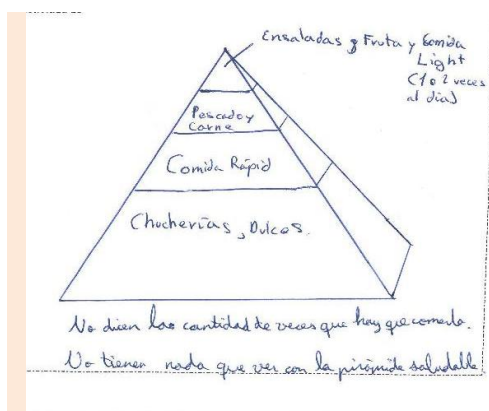 Ensaladas y Fruta y Comida
Light
(1 o 2 veces
al día)
Pescado y
Carne
Comida Rápid
Chucherías, Dulces.
No dicen las cantidad de veces que hay que comerlo.
No tienen nada que ver con la pirámide saludable